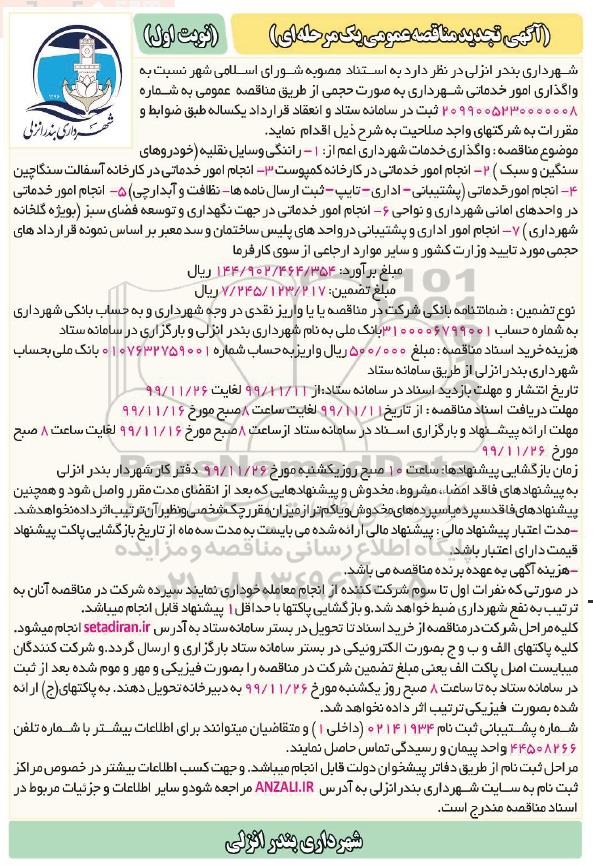 (آگهی تجدید مناقصه عمومی یک مرحله ای)
(نوبت اول)
شهرداری بندر انزلی
شهرداری بندر انزلی در نظر دارد به استناد مصوبه شورای اسلامی شهر نسبت به
واگذاری امور خدماتی شهرداری به صورت حجمی از طریق مناقصه عمومی به شماره
2099005230000008 ثبت در سامانه ستاد و انعقاد قرارداد یکساله طبق ضوابط و
مقررات به شرکتهای واجد صلاحیت به شرح ذیل اقدام نماید.
موضوع مناقصه : واگذاری خدمات شهرداری اعم از: 1- رانندگی وسایل نقلیه (خودروهای
سنگین و سبک ) 2- انجام امور خدماتی در کارخانه کمپوست 3- انجام امور خدماتی در کارخانه آسفالت سنگاچین
4- انجام امورخدماتی (پشتیبانی- اداری-تایپ-ثبت ارسال نامه ها- نظافت و آبدارچی) 5- انجام امور خدماتی
در واحدهای امانی شهرداری و نواحی 6- انجام امور خدماتی در جهت نگهداری و توسعه فضای سبز (بویژه گلخانه
شهرداری) 7- انجام امور اداری و پشتیبانی درواحد های پلیس ساختمان و سد معبر بر اساس نمونه قرارداد های
حجمی مورد تایید وزارت کشور و سایر موارد ارجاعی از سوی کارفرما
مبلغ برآورد: 144/902/464/354 ریال
مبلغ تضمین: 7/245/123/217 ریال
نوع تضمین : ضمانتنامه بانکی شرکت در مناقصه یا یا واریز نقدی در وجه شهرداری و به حساب بانکی شهرداری
به شماره حساب 3100006799001بانک ملی به نام شهرداری بندر انزلی و بارگزاری در سامانه ستاد
هزینه خرید اسناد مناقصه : مبلغ 500/000 ریال واریز به حساب شماره 0107632759001 بانک ملی بحساب
شهرداری بندرانزلی از طریق سامانه ستاد
تاریخ انتشار و مهلت بازدید اسناد در سامانه ستاد:از 99/11/11 لغایت 99/11/26
مهلت دریافت اسناد مناقصه : از تاریخ 99/11/11 لغایت ساعت 8 صبح مورخ 99/11/16
مهلت ارائه پیشنهاد و بارگزاری اسناد در سامانه ستاد ازساعت 8 صبح مورخ 99/11/16 لغایت ساعت 8 صبح
مورخ 99/11/26
زمان بازگشایی پیشنهادها: ساعت 10 صبح روز یکشنبه مورخ 99/11/26 دفتر کار شهردار بندر انزلی
به پیشنهادهای فاقد امضا، مشروط، مخدوش و پیشنهادهایی که بعد از انقضای مدت مقرر واصل شود و همچنین
پیشنهادهای فاقد سپرده یا سپرده های مخدوش و یا کم تر از میزان مقرر چک شخصی و نظیر آن ترتیب اثر داده نخواهد شد.
-مدت اعتبار پیشنهاد مالی : پیشنهاد مالی ارائه شده می بایست به مدت سه ماه از تاریخ بازگشایی پاکت پیشنهاد
قیمت دارای اعتبار باشد
-هزینه آگهی به عهده برنده مناقصه می باشد.
در صورتی که نفرات اول تا سوم شرکت کننده از انجام معامله خودداری نمایند سپرده شرکت در مناقصه آنان به
ترتیب به نفع شهرداری ضبط خواهد شد.و بازگشایی پاکتها با حداقل 1 پیشنهاد قابل انجام میباشد.
کلیه مراحل شرکت در مناقصه از خرید اسناد تا تحویل در بستر سامانه ستاد به آدرس setadiran.ir انجام میشود.
کلیه پاکتهای الف و ب و ج بصورت الکترونیکی در بستر سامانه ستاد بارگزاری و ارسال گردد.و شرکت کنندگان
میبایست اصل پاکت الف یعنی مبلغ تضمین شرکت در مناقصه را بصورت فیزیکی و مهر و موم شده بعد از ثبت
در سامانه ستاد به تا ساعت 8 صبح روز یکشنبه مورخ 99/11/26 به دبیرخانه تحویل دهند. به پاکتهای(ج) ارائه
شده بصورت فیزیکی ترتیب اثر داده نخواهد شد.
شماره پشتیبانی ثبت نام 02141934 (داخلی 1) و متقاضیان میتوانند برای اطلاعات بیشتر با شماره تلفن
44508266 واحد پیمان و رسیدگی تماس حاصل نمایند.
مراحل ثبت نام از طریق دفاتر پیشخوان دولت قابل انجام میباشد. و جهت کسب اطلاعات بیشتر در خصوص مراکز
ثبت نام به سایت شهرداری بندرانزلی به آدرس ANZALI.IR مراجعه شودو سایر اطلاعات و جزئیات مربوط در
اسناد مناقصه مندرج است.
شهرداری بندر انزلی